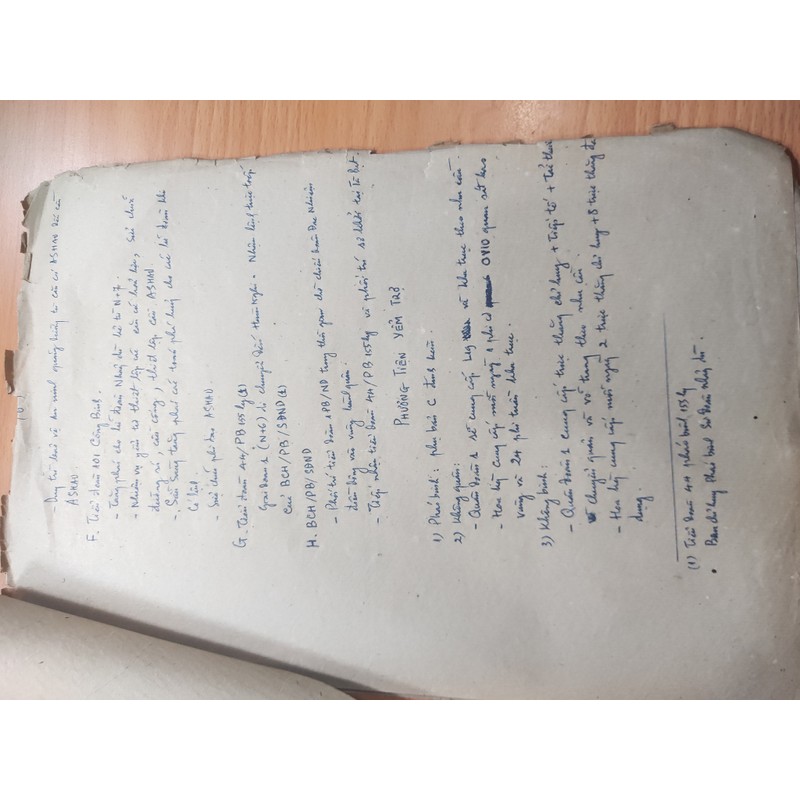 (6)
- Duy trì bảo vệ an ninh quãng đường từ căn cứ ASHAU đến căn
ASHAU.
F. Tiểu đoàn 101 Công Binh.
- Tăng phái cho lữ đoàn Nhảy dù kể từ N+7.
- Nhiệm vụ yểm trợ thiết lập các căn cứ hoả lực, sửa chữa
đường sá, cầu cống, thiết lập căn ASHAU.
- Sẵn sàng tăng phái các toán phá huỷ cho các lữ đoàn khi
có lệnh.
- Sửa chữa phi đạo ASHAU.
G. Tiểu đoàn 44/PB 155 ly (1)
Giai đoạn 1 (N+6) di chuyển đến . Nhận lệnh trực tiếp
của BCH/PB/SĐND (1)
H. BCH/PB/SĐND
- Phối trí tiểu đoàn 1PB/ND trong thời gian chờ chiến đoàn Đặc Nhiệm
điều động vào vùng hành quân.
- Tiếp nhận tiểu đoàn 44/PB 155 ly và phối trí sẽ khởi tại Tà Bạt.
PHƯƠNG TIỆN YỂM TRỢ
1) Pháo binh: phụ bản C đính kèm.
2) Không quân:
- Quân đoàn 1 sẽ cung cấp L19 và khu trục theo nhu cầu.
- Hoa kỳ cung cấp mỗi ngày 1 phi cơ OV10 quan sát bao
vùng và 24 phi tuần khu trục.
3) Không binh:
- Quân đoàn 1 cung cấp trực thăng chỉ huy + Tiếp tế + Tải thương
chuyển quân và võ trang theo nhu cầu.
- Hoa kỳ cung cấp mỗi ngày 2 trực thăng chỉ huy + 8 trực thăng đa
dụng.
(1) Tiểu đoàn 44 pháo binh 155 ly
• Ban chỉ huy Pháo binh Sư đoàn nhảy dù.